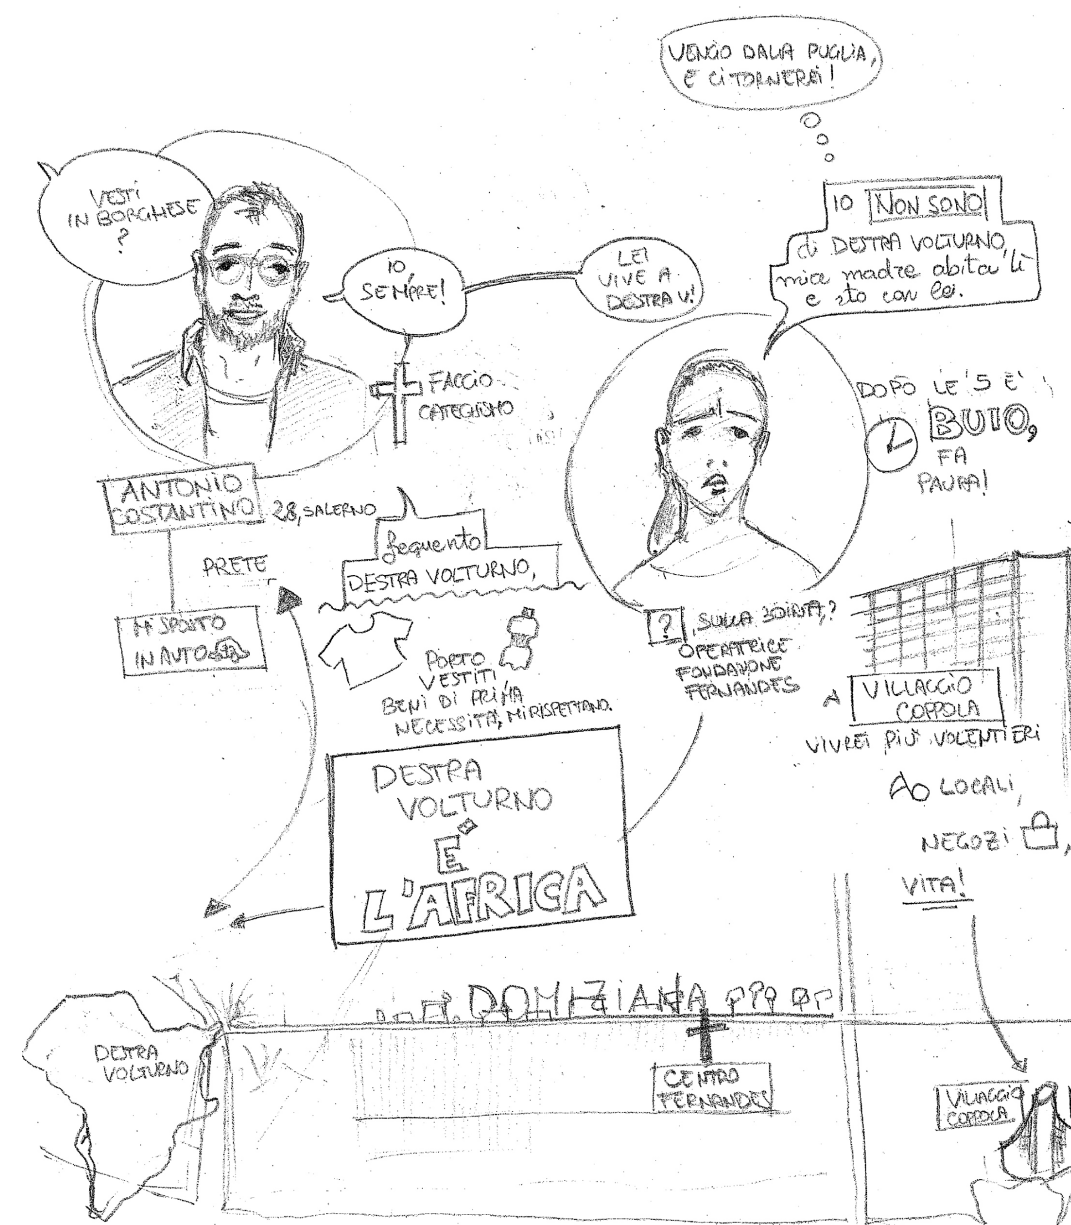 VENGO DALLA PUGLIA,
E CI TORNEREI!
VESTI
IN BORGHESE
?
IO,
SEMPRE!
LEI
VIVE A
DESTRA V.!
IO NON SONO
di DESTRA VOLTURNO,
mia madre abita lì
e sto con lei.
FACCIO
CATECHISMO
DOPO LE 5 E'
BUIO,
FA
PAURA!
ANTONIO
COSTANTINO
28, SALERNO
PRETE
MI SPOSTO
IN AUTO
frequento
DESTRA VOLTURNO,
PORTO
VESTITI,
BENI DI PRIMA
NECESSITÀ, MI RISPETTANO.
?, SULLA 30INA,?
OPERATRICE
FONDAZIONE
FERNANDES
A VILLAGGIO
COPPOLA
VIVREI PIÙ VOLENTIERI
LOCALI,
NEGOZI ,
VITA!
DESTRA
VOLTURNO
È
L'AFRICA
DOMIZIANA
DESTRA
VOLTURNO
CENTRO
FERNANDES
VILLAGGIO
COPPOLA